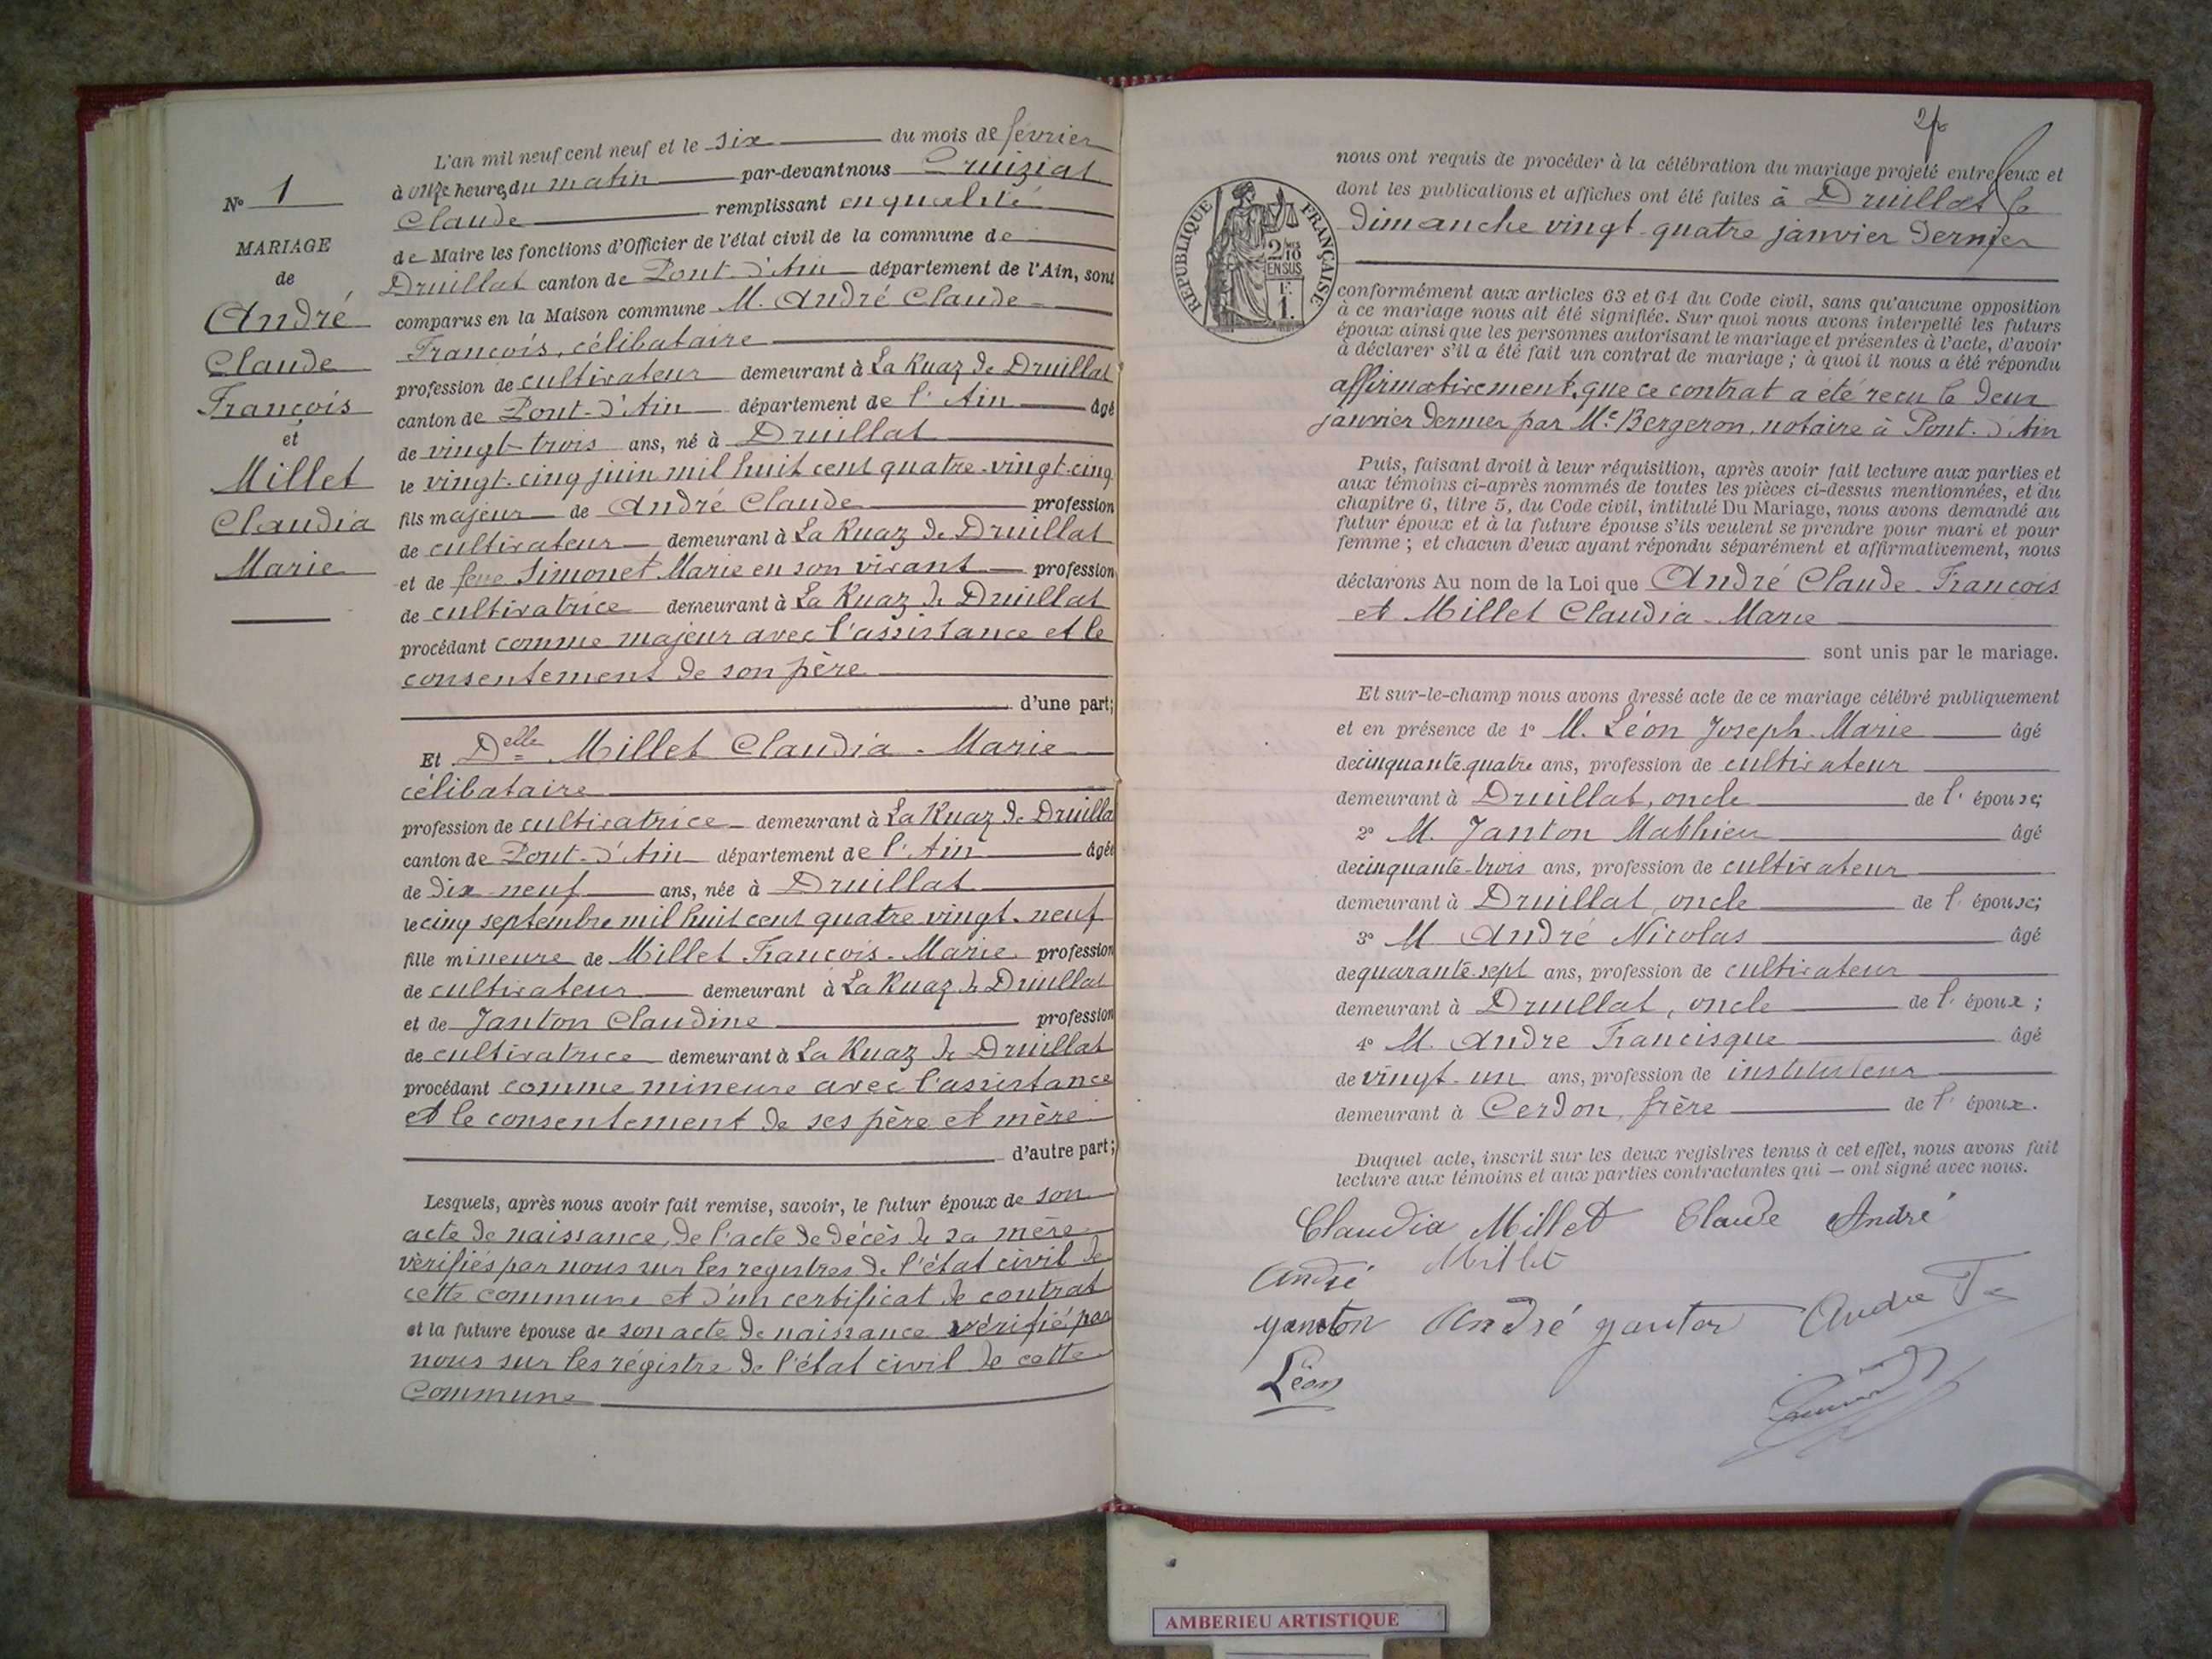 N° 1
MARIAGE
de
André
Claude
François
et
Millet
Claudia
Marie
L'an mil neuf cent neuf et le six du mois de février
à onze heures du matin par-devant nous Cruiziat
Claude remplissant en qualité
de Maire les fonctions d'Officier de l'état civil de la commune de
Druillat canton de Pont-d'Ain département de l'Ain, sont
comparus en la Maison commune M. André Claude-
François, célibataire
profession de cultivateur demeurant à La Ruaz de Druillat
canton de Pont-d'Ain département de l'Ain âgé
de vingt-trois ans, né à Druillat
le vingt-cinq juin mil huit cent quatre-vingt-cinq
fils majeur de André Claude profession
de cultivateur demeurant à La Ruaz de Druillat
et de feue Simonet Marie en son vivant profession
de cultivatrice demeurant à La Ruaz de Druillat
procédant comme majeur avec l'assistance et le
consentement de son père
d'une part;
Et Delle Millet Claudia-Marie
célibataire
profession de cultivatrice demeurant à La Ruaz de Druilla
canton de Pont-d'Ain département de l'Ain âgée
de dix-neuf ans, née à Druillat
le cinq septembre mil huit cent quatre vingt-neuf
fille mineure de Millet François-Marie profession
de cultivateur demeurant à La Ruaz de Druillat
et de Janton Claudine profession
de cultivatrice demeurant à La Ruaz de Druillat
procédant comme mineure avec l'assistance
et le consentement de ses père et mère
d'autre part;
Lesquels, après nous avoir fait remise, savoir, le futur époux de son
acte de naissance, de l'acte de décès de sa mère
vérifiés par nous sur les registres de l'état civil de
cette commune et d'un certificat de contrat
et la future épouse de son acte de naissance vérifié par
nous sur les régistre de l'état civil de cette
commune
2
nous ont requis de procéder à la célébration du mariage projeté entre eux et
dont les publications et affiches ont été faites à Druillat le
dimanche vingt-quatre janvier dernier
RÉPUBLIQUE FRANÇAISE
2/10
EN SUS
F.
1.
conformément aux articles 63 et 64 du Code civil, sans qu'aucune opposition
à ce mariage nous ait été signifiée. Sur quoi nous avons interpellé les futurs
époux ainsi que les personnes autorisant le mariage et présentes à l'acte, d'avoir
à déclarer s'il a été fait un contrat de mariage ; à quoi il nous a été répondu
affirmativement, que ce contrat a été reçu le deux
janvier dernier par Me Bergeron, notaire à Pont-d'Ain
Puis, faisant droit à leur réquisition, après avoir fait lecture aux parties et
aux témoins ci-après nommés de toutes les pièces ci-dessus mentionnées, et du
chapitre 6, titre 5, du Code civil, intitulé Du Mariage, nous avons demandé au
futur époux et à la future épouse s'ils veulent se prendre pour mari et pour
femme ; et chacun d'eux ayant répondu séparément et affirmativement, nous
déclarons Au nom de la Loi que André Claude-François
et Millet Claudia-Marie
sont unis par le mariage.
Et sur-le-champ nous avons dressé acte de ce mariage célébré publiquement
et en présence de 1° M. Léon Joseph-Marie âgé
de cinquante-quatre ans, profession de cultivateur
demeurant à Druillat, oncle de l'épouse;
2° M. Janton Mathieu âgé
de cinquante-trois ans, profession de cultivateur
demeurant à Druillat, oncle de l'épouse;
3° M. André Nicolas âgé
de quarante-sept ans, profession de cultivateur
demeurant à Druillat, oncle de l'époux ;
4° M. André Francisque âgé
de vingt-un ans, profession de instituteur
demeurant à Cerdon, frère de l'époux.
Duquel acte, inscrit sur les deux registres tenus à cet effet, nous avons fait
lecture aux témoins et aux parties contractantes qui — ont signé avec nous.
Claudia Millet Claude André
André Millet
yanton André yanton André F
Léon
AMBERIEU ARTISTIQUE